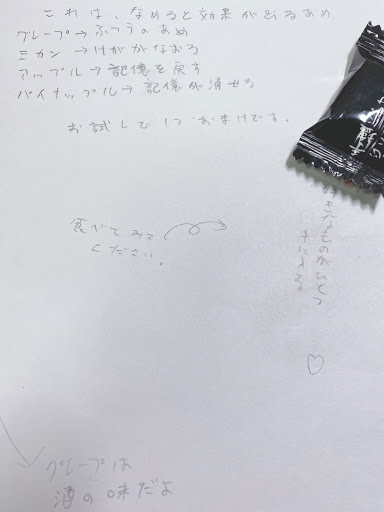 これは、なめると効果が出るあめ
グレープ→ふつうのあめ
ミカン→けががなおる
アップル→記憶を戻す
パイナップル→記憶が消せる
お試しで1つおまけです。
食べてみて
ください。
好きなものがひとつ
手に入る
♡
グレープは
酒の味だよ